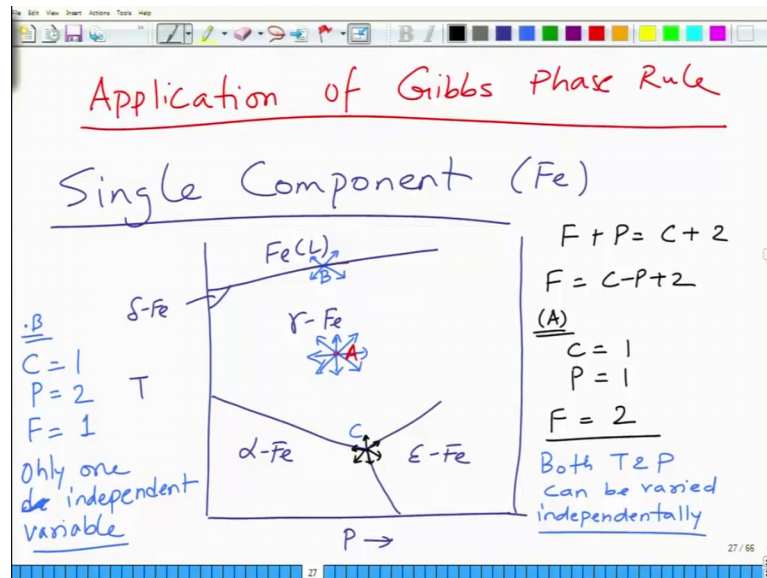 File Edit View Insert Actions Tools Help
Application of Gibbs Phase Rule
Single Component (Fe)
Fe(L)
B
δ-Fe
γ-Fe
A
T
C
α-Fe
ε-Fe
P →
.B
C = 1
P = 2
F = 1
Only one
independent
variable
F + P = C + 2
F = C-P+2
(A)
C = 1
P = 1
F = 2
Both T & P
can be varied
independentally
27 / 66
27